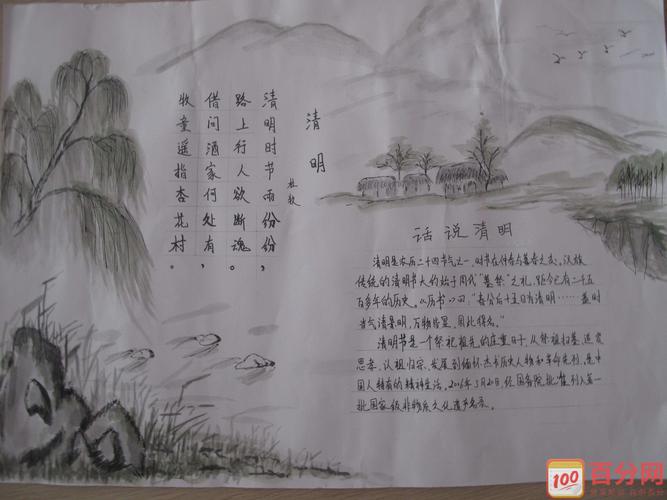 清明
杜牧
清明时节雨份份，
路上行人欲断魂。
借问酒家何处有，
牧童遥指杏花村。
话说清明
清明是农历二十四节气之一，时节在仲春与暮春之交。汉族
传统的清明节大约始于周代"墓祭"之礼，距今已有二千五
百多年的历史。《历书》曰："春分后十五日为清明……盖时
当气清景明，万物皆显，因此得名。"
清明节是一个祭祀祖先的庄重日子，从祭祖扫墓、追
思孝、认祖归宗，发展到缅怀杰出历史人物和革命先烈，是中
国人特有的精神生活。2006年5月20日，经国务院批准列入第一
批国家级非物质文化遗产名录。
100 百分网